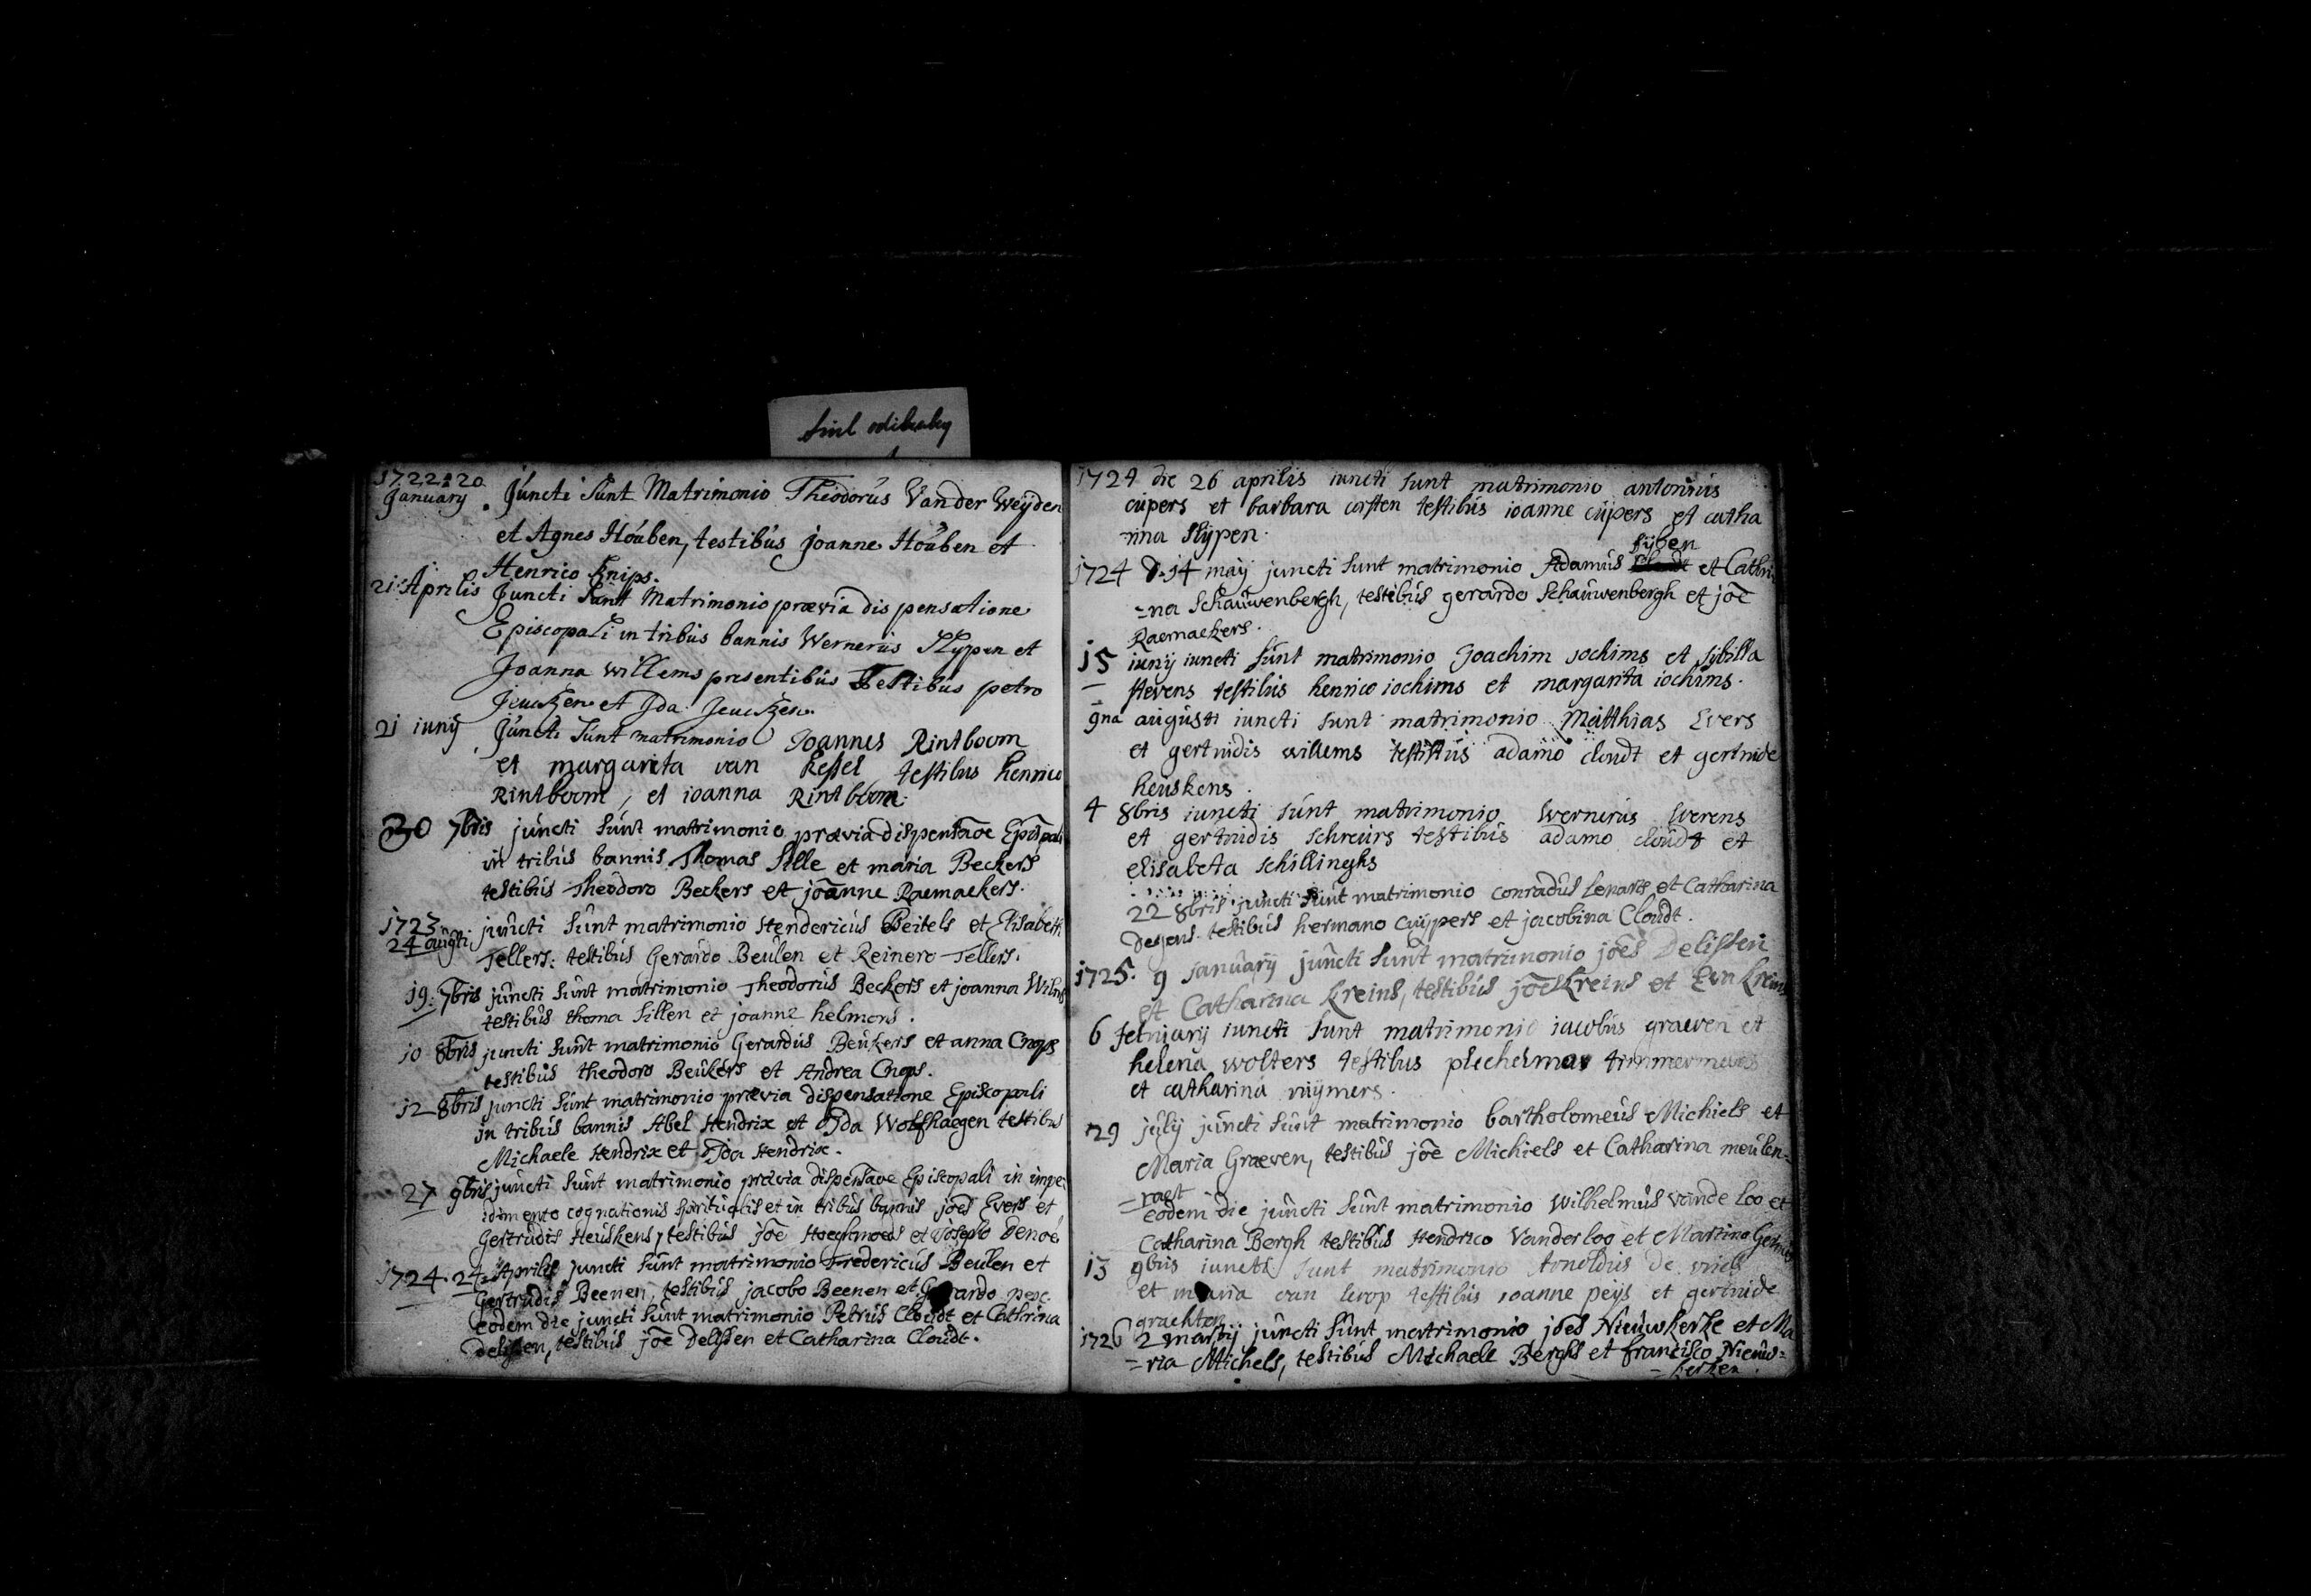 1722: 20
January. Juncti Sunt Matrimonio Theodorus Vander Weÿden
et Agnes Houben, testibus joanne Houben et
Henrico Knips.
21: Aprilis Juncti Sunt Matrimonio prævia dispensatione
Episcopali in tribus bannis Wernerus Slypen et
Joanna willems presentibus Testibus petro
et Ida
21 iunÿ Juncti Sunt matrimonio Joannes Rintboom
et margareta van Kessel testibus henrico
Rintboom, et ioanna Rintboom.
30 7bris juncti sunt matrimonio prævia dispensaõe Epispali
in tribus bannis Thomas Sille et maria Beckers
testibus Theodoro Beckers et joanne Raemaekers.
1723
24 augti: juncti sunt matrimonio Hendericus Beitels et Elisabeth
Tellers: testibus Gerardo Beulen et Reinero Tellers.
19: 7bris juncti sunt matrimonio Theodorus Beckers et joanna
testibus thoma Sillen et joanne helmons.
10 8bris juncti sunt matrimonio Gerardus Beukers et anna Cnops
testibus theodoro Beukers et Andrea Cnops.
12 8bris juncti sunt matrimonio prævia dispensatione Episcopali
in tribus bannis Abel Hendrix et Ida Wolfhaegen testibus
Michaele Hendrix et Ida Hendrix.
27 9bris juncti sunt matrimonio prævia dispensaõe Episcopali in impe
dimento cognationis spiritualis et in tribus bannis joẽs Evers et
Gertrudis Heuskens, testibus joẽ et Josepho Denoé
1724. 24. Aprilis juncti sunt matrimonio Fredericus Beulen et
Gertrudis Beenen, testibus jacobo Beenen et
eodem die juncti sunt matrimonio Petrus Cloudt et Cathrina
Delissen, testibus joẽ Delissen et Catharina Cloudt.
1724 die 26 aprilis iuncti sunt matrimonio antonius
cüpers et barbara corsten testibus ioanne cüpers et catha
rina Slÿpen.
sÿben
1724 d. 14 maÿ juncti sunt matrimonio Adamus et Cathri
=na Schauwenbergh, testibus gerardo Schauwenbergh et joẽ
Raemaekers.
15 iunÿ iuncti sunt matrimonio Joachim iochims et sibilla
stevens testibus henrico iochims et margarita iochims.
9na augusti iuncti sunt matrimonio Matthias Evers
et gertrudis willems testibus adamo cloudt et gertrude
heuskens.
4 8bris iuncti sunt matrimonio Wernerus Werens
et gertrudis schreurs testibus adamo cloudt et
elisabeta schillinghs
22 8bris juncti sunt matrimonio conradus Lenarts et Catharina
Degens. testibus hermano Cuÿpers et jacobina Cloudt.
1725. 9 januarÿ juncti sunt matrimonio joẽs Delissen
et Catharina Kreins, testibus joẽ Kreins et Eva Kreins
6 februarÿ iuncti sunt matrimonio iacobus graeven et
helena wolters testibus plechelmo timmermans
et catharina rüÿmers.
29 julÿ juncti sunt matrimonio bartholomeus Michiels et
Maria Graeven, testibus joẽ Michiels et Catharina meulen=
=raet
eodem die juncti sunt matrimonio Wilhelmus vande Loo et
Catharina Bergh testibus Hendrico Vanderloo et Martino
13 9bris iuncti sunt matrimonio Arnoldus de
et maria van testibus ioanne peÿs et gertrude
grachten
1726 2 martÿ juncti sunt matrimonio joẽs Nieuwkerke et Ma
=ria Michels, testibus Michaele Berghs et francisco Nieuw=
=kerken.